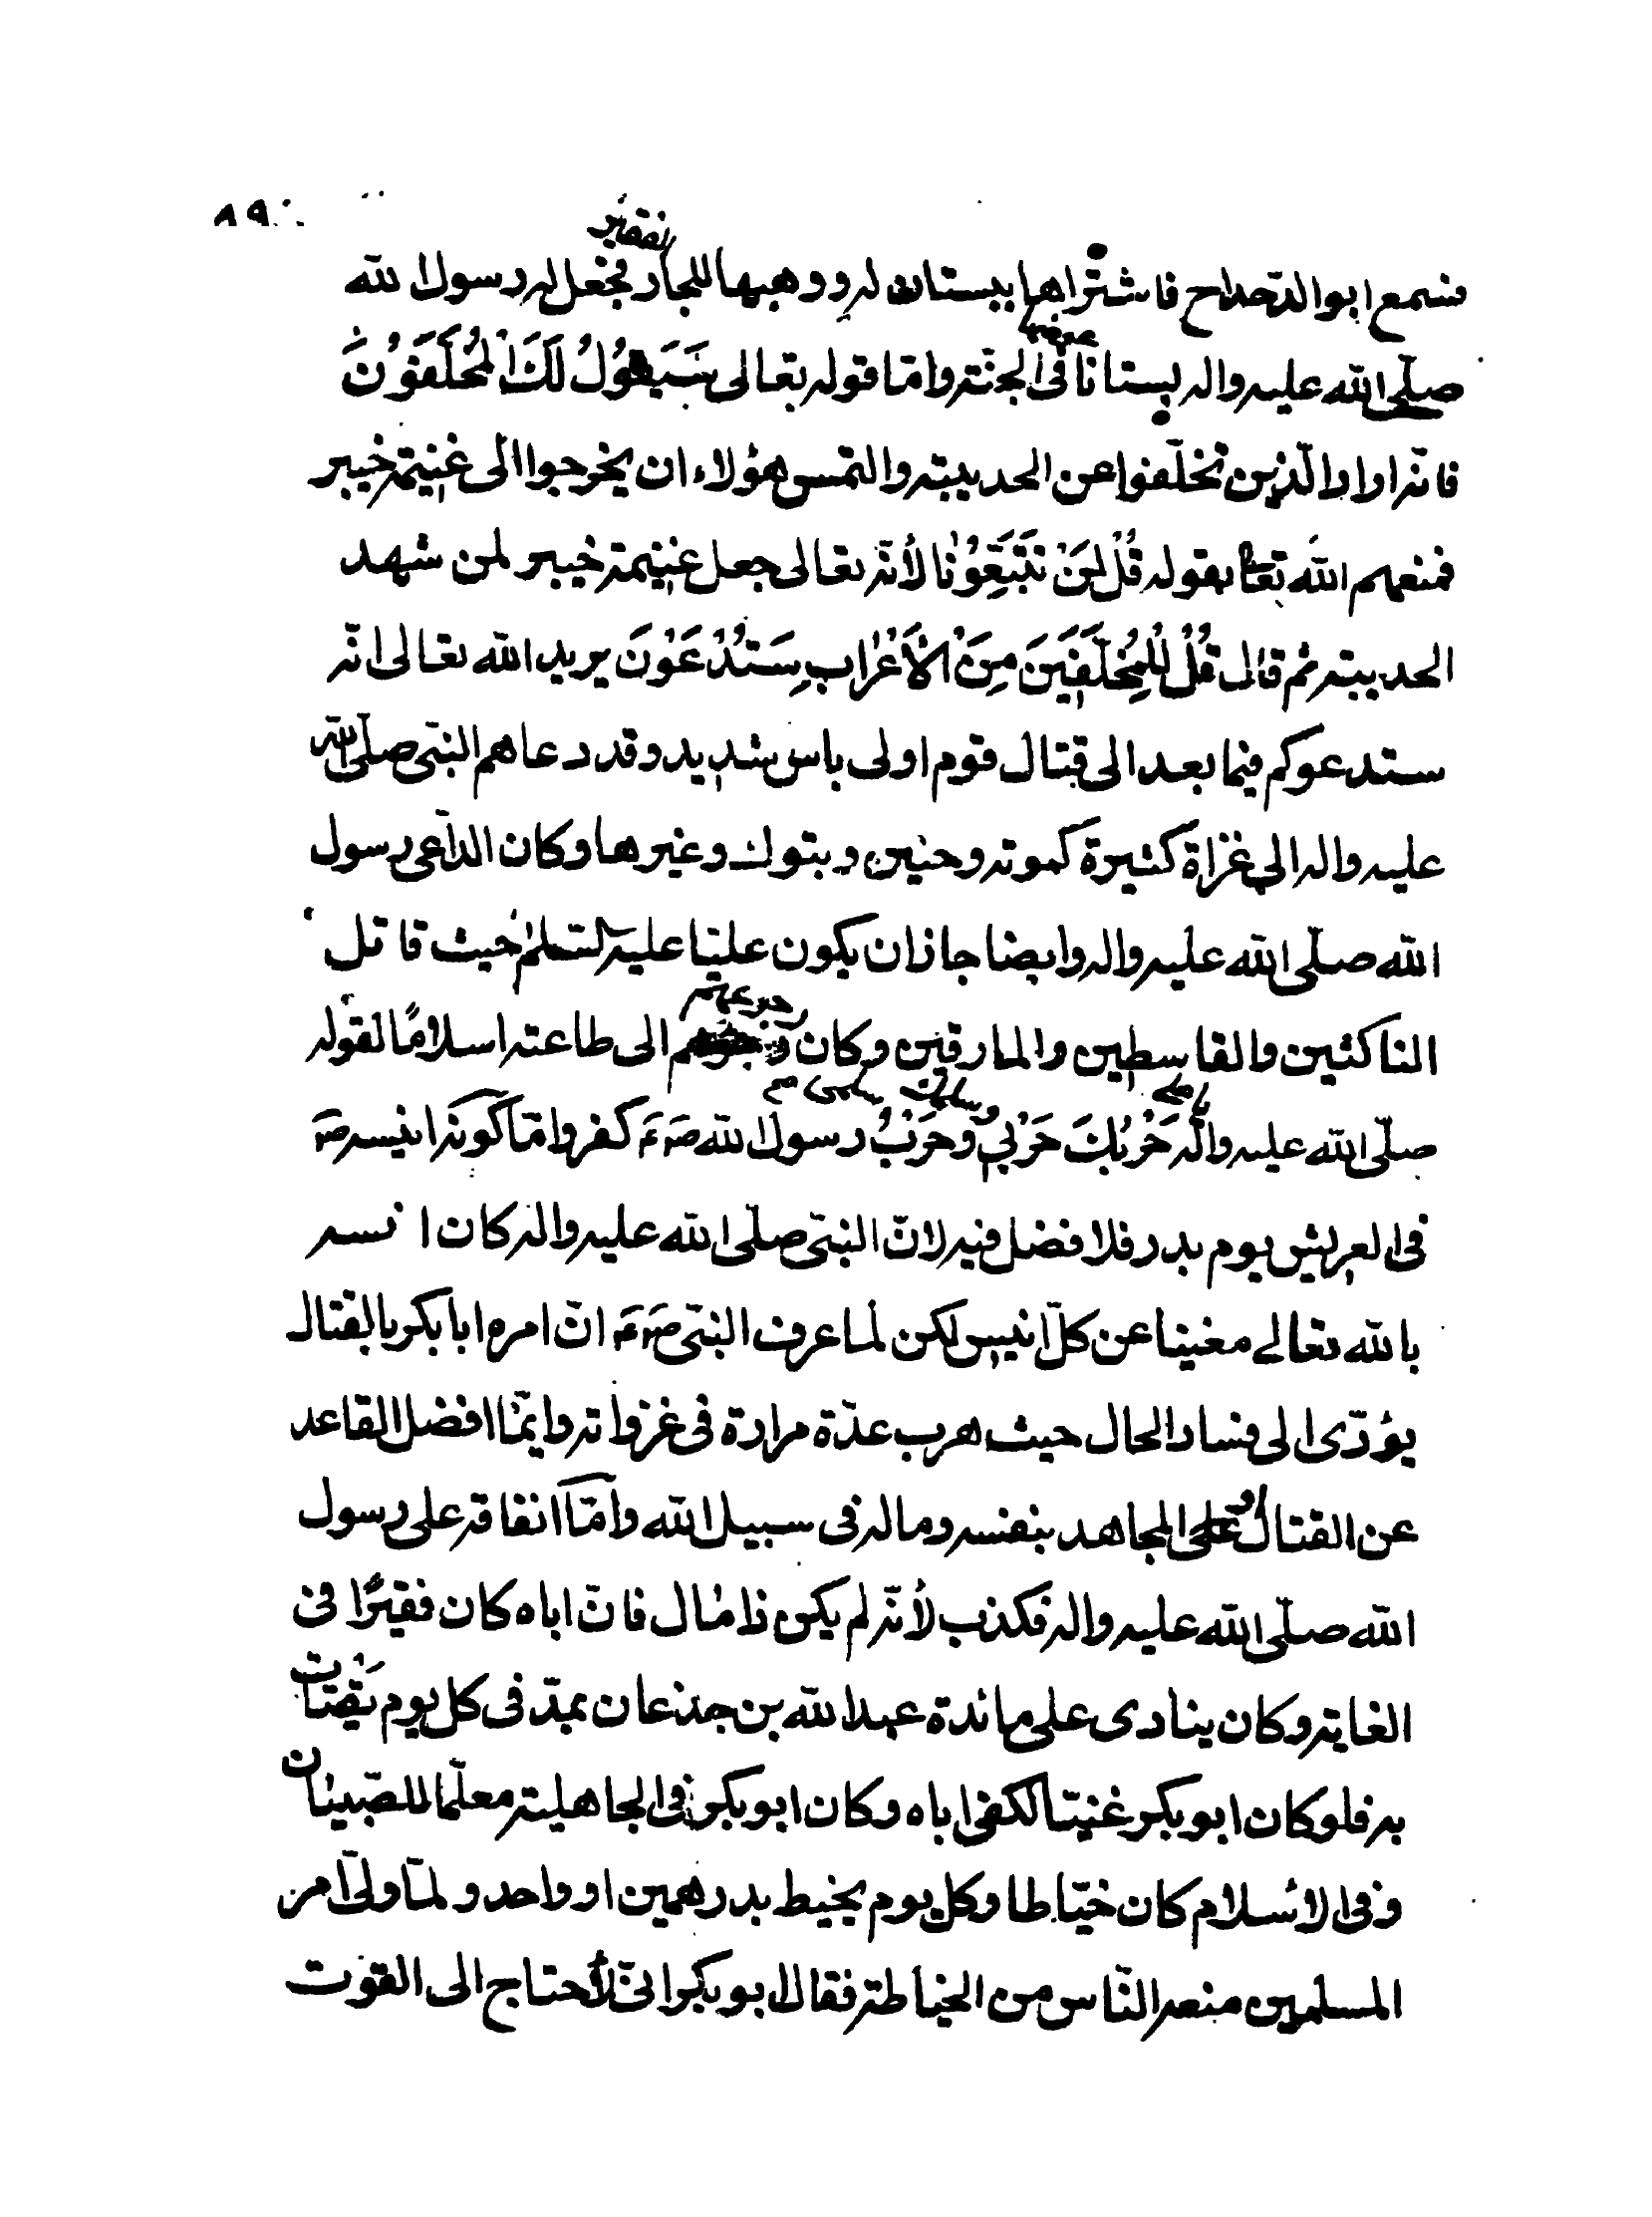 ٨٩
الفقير
فسمع ابو الدّحداح فاشتراها ببستان له ووهبها للجار فجعل له رسول الله
عوضها
صلّى الله عليه واله بستانا فى الجنّة وامّا قوله تعالى سَيَقُولُ لَكَ الْمُخَلَّفُونَ
فانّه اراد الّذين تخلّفوا عن الحديبيّة والتمس هؤلاء ان يخرجوا الى غنيمة خيبر
فمنعهم الله تعالى بقوله قُلْ لَنْ تَتَّبِعُونَا لأنّه تعالى جعل غنيمة خيبر لمن شهد
الحديبية ثم قال قُلْ لِلْمُخَلَّفِينَ مِنَ الْأَعْرَابِ سَتُدْعَوْنَ يريد الله تعالى انّه
ستدعوكم فيما بعد الى قتال قوم اولى باس شديد وقد دعاهم النبّى صلّى الله
عليه واله الى غزاة كثيرة كموته وحنين وبتوك وغيرها وكان الداعى رسول
الله صلّى الله عليه واله وايضا جازان يكون عليّا عليه السّلم حيث قاتل
رجوعهم
الناكثين والقاسطين والمارقين وكان الى طاعته اسلامًا لقوله
يا على وسلمك سلمى
صلّى الله عليه واله حَرْبُكَ حَرْبِي وَحَرْبُ رسول الله ص ع كفر وامّا كونه انيسه ص
فى العريش يوم بدر فلا فضل فيه لانّ النبّى صلّى الله عليه واله كان انسه
بالله تعالى مغنيا عن كلّ انيس لكن لما عرف النبّى ص ع انّ امره ابا بكر بالقتال
يؤدّى الى فساد الحال حيث هرب عدّة مرارة فى غزواته وايّما افضل القاعد
عن القتال او المجاهد بنفسه وماله فى سبيل الله وامّا انفاقه على رسول
الله صلّى الله عليه واله فكذب لأنّه لم يكن ذا مال فانّ اباه كان فقيرًا فى
الغاية وكان ينادى على مائدة عبد الله بن جذعان بمدّ فى كل يوم يَقْتات
به فلو كان ابو بكر غنيّا لكفى اباه وكان ابو بكر فى الجاهلية معلّما للصّبيان
وفى الاسلام كان خيّاطا وكل يوم يخيط بدرهمين او واحد ولمّا ولّى امر
المسلمين منعه النّاس من الخياطة فقال ابو بكر انّى لأحتاج الى القوت